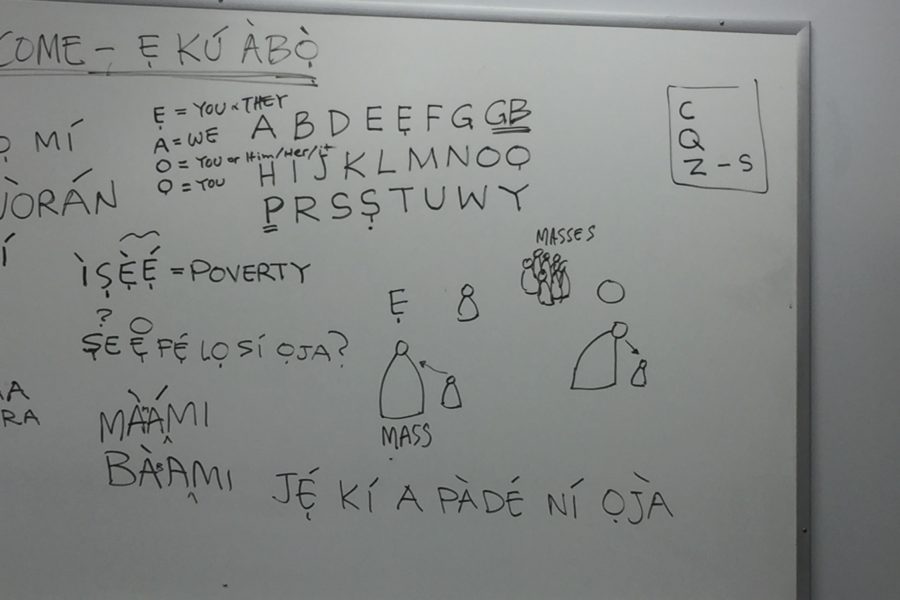 COME – Ẹ KÚ ÀBỌ̀
Ẹ = YOU & THEY
A = WE
O = YOU or Him/Her/it
Ọ = YOU
A B D E Ẹ F G GB
H I J K L M N O Ọ
P R S Ṣ T U W Y
C
Q
Z – S
Ọ MÍ
ÒRÁN
Í
ÌṢẸ̀Ẹ́ = POVERTY
?
ṢE Ẹ FẸ́ LỌ SÍ ỌJA?
MÀÁMI
BÀAMI
RA
MASSES
Ẹ
O
MASS
JẸ́ KÍ A PÀDÉ NÍ ỌJÀ